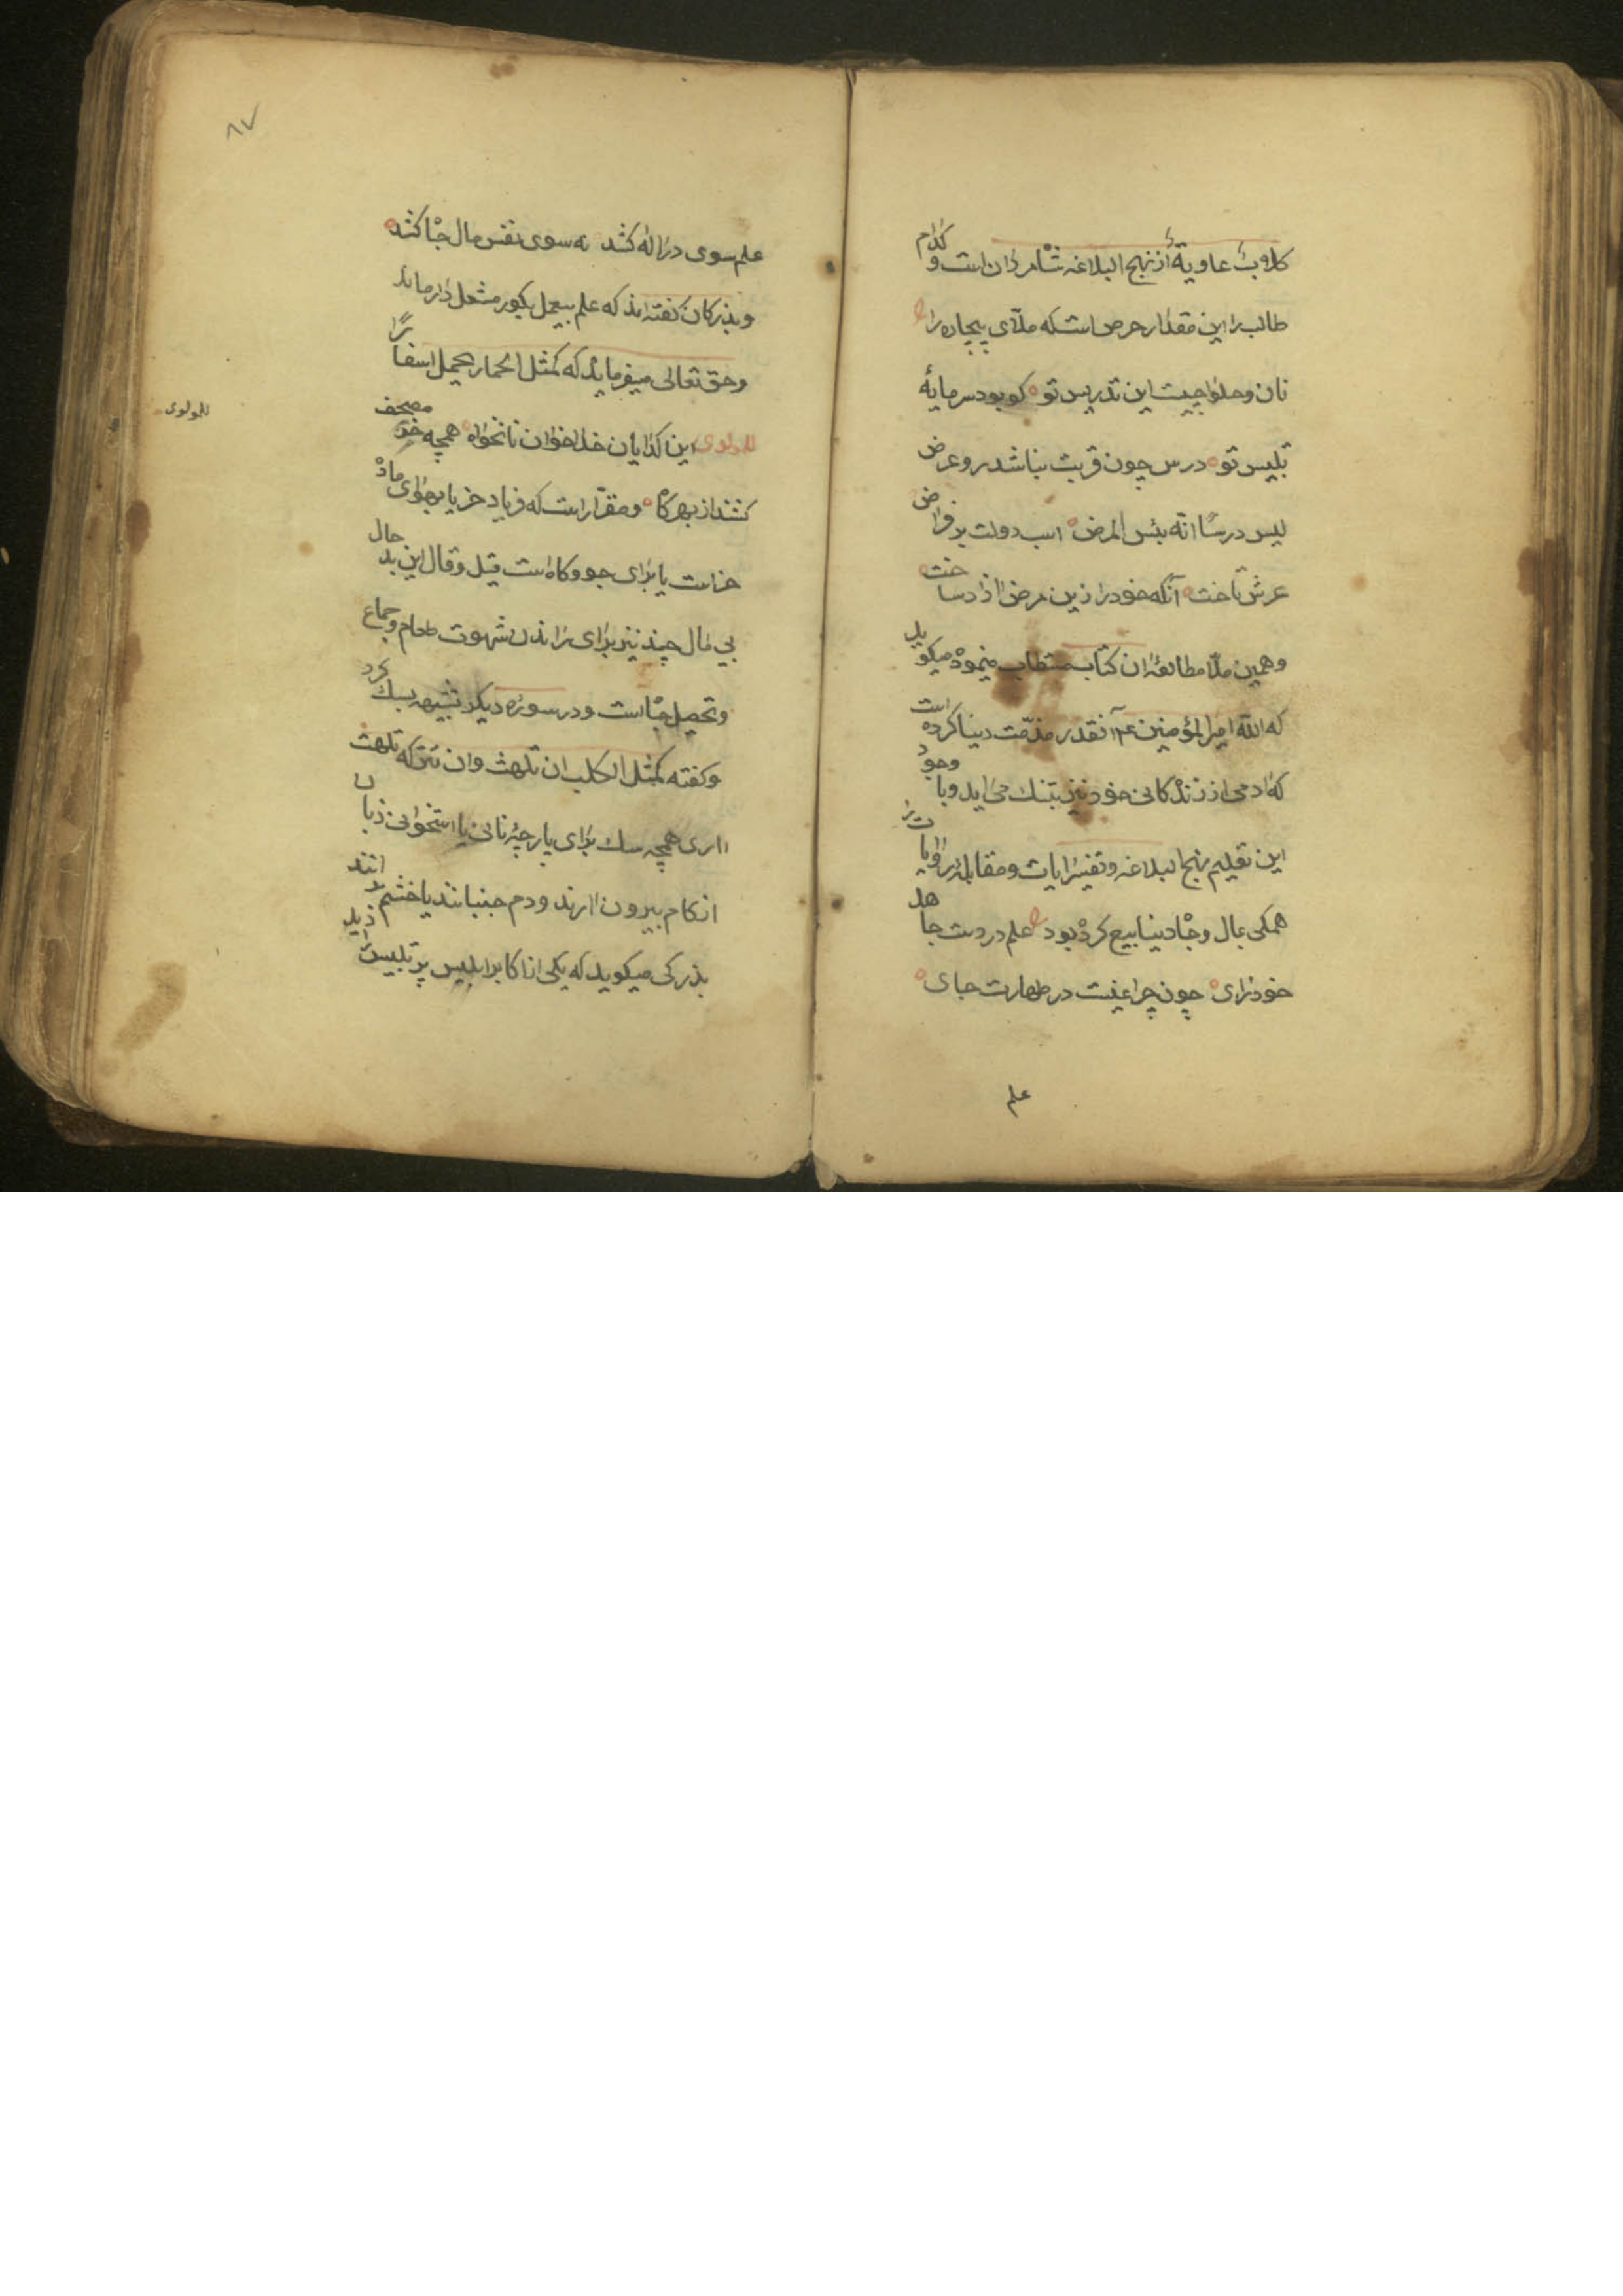 کلاوب عاویة از نهج البلاغه شاهد آن است و کدام
طالب را این مقدار حرص است که ملای بیچاره را
نان و حلوا چیست این تدریس تو کو بود سرمایهٔ
تلبیس تو درس چون قربت نباشد رو عرض
لیس درسًا انّه بئس المرض اسب دولت بر فراض
عرش تاخت آنکه خود را زین مرض ازاد ساخت
و همین ملّا مطالعهٔ ان کتاب مستطاب مینمود میکوید
که الله امیر المؤمنین ع آنقدر مذمّت دنیا کرده است
که ادمی از زندکانی خود نیز بتنک می اید و با وجود
این تعلیم نهج البلاغه و تفسیر ایات و مقابلهٔ روایات را
همکی بمال و جاه دنیا بیع کرده بود علم در دست جاهل
خود رای چون چراغیست در طهارت جای
علم
۸۷
علم سوی در اله کشد نه سوی نفس مال جاه کشد
و بزرکان کفته اند که علم بیعمل بکور مشعل دار ماند
و حق تعالی میفرماید که کمثل الحمار یحمل اسفارًا
للمولوی
للمولوی این کدایان خدا خوان نانخواه همچه خر مصحف
کشند از بهر کاه و مقرّر است که فریاد خر یا بهوای ماده
خر است یا برای جو و کاه است قیل و قال این بد حال
بی مال چند نیز برای راندن شهوت طعام و جماع
و تحصیل جاه است و در سورهٔ دیکر تشبیهه بسک کرد
و کفته کمثل الکلب ان تلهث وان تترکه تلهث
اری همچه سک برای پارچهٔ نانی یا استخوانی زبان
از کام بیرون ارند و دم جنبانند یا خشم
بزرکی میکوید که یکی از اکابر ابلیس پر تلبیس را